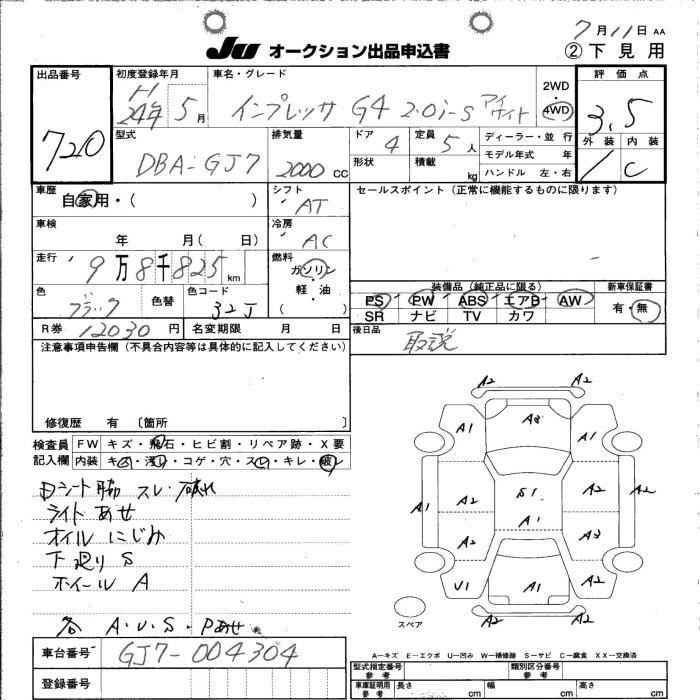 7月11日 AA
JU オークション出品申込書
②下見用
出品番号
720
初度登録年月
H
24年 5月
車名・グレード
インプレッサ G4 2.0i-S アイサイト
2WD
4WD
評価点
3.5
外装 内装
C
型式
DBA-GJ7
排気量
2000 cc
ドア 4
形状
定員 5人
積載 kg
ディーラー・並行
モデル年式 年
ハンドル 左・右
車歴
自家用・( )
シフト
AT
セールスポイント(正常に機能するものに限ります)
車検
年 月( 日)
冷房
AC
走行
9万8千825km
燃料
ガソリン
軽・油
( )
色
ブラック
色替
色コード
32J
装備品(純正品に限る)
PS PW ABS エアB AW
SR ナビ TV カワ
新車保証書
有・無
R券 12030円
名変期限 月 日
後日品
取説
注意事項申告欄(不具合内容等は具体的に記入してください)
修復歴 有 〔箇所 〕
検査員
記入欄
FW キズ・飛石・ヒビ割・リペア跡・X要
内装 キズ・汚れ・コゲ・穴・スレ・キレ・破レ
日シート脇 スレ・破れ
ライトあせ
オイルにじみ
下廻りS
ホイールA
各 A・U・S・Pあせ
A2 A2
A1 A3 A1
A1 A2 S1 A2 A2
A1
A2 A3
U1 A1 A2
A2 A2
スペア
A−キズ E−エクボ U−凹み W−補修跡 S−サビ C−腐食 XX−交換済
車台番号
GJ7-004304
登録番号
型式指定番号
参考
類別区分番号
参考
車庫証明用
参考
長さ cm 幅 cm 高さ cm